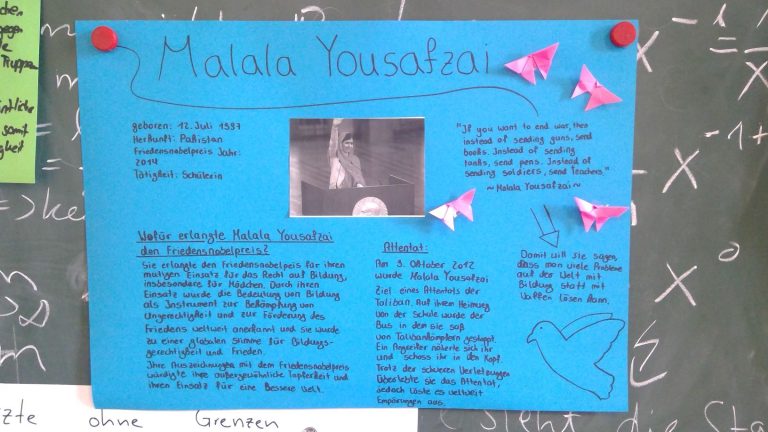 Malala Yousafzai
geboren: 12. Juli 1997
Herkunft: Pakistan
Friedensnobelpreis Jahr:
2014
Tätigkeit: Schülerin
"If you want to end war, then
instead of sending guns, send
books. Instead of sending
tanks, send pens. Instead of
sending soldiers, send teachers."
~Malala Yousafzai~
Damit will sie sagen,
dass man viele Probleme
auf der Welt mit
Bildung statt mit
Waffen lösen kann.
Wofür erlangte Malala Yousafzai
den Friedensnobelpreis?
Sie erlangte den Friedensnobelpreis für ihren
mutigen Einsatz für das Recht auf Bildung,
insbesondere für Mädchen. Durch ihren
Einsatz wurde die Bedeutung von Bildung
als Instrument zur Bekämpfung von
Ungerechtigkeit und zur Förderung des
Friedens weltweit anerkannt und sie wurde
zu einer globalen Stimme für Bildungs-
gerechtigkeit und Frieden.
Ihre Auszeichnungen mit dem Friedensnobelpreis
würdigte ihre außergewöhnliche Tapferkeit und
ihren Einsatz für eine Bessere Welt.
Attentat:
Am 9. Oktober 2012
wurde Malala Yousafzai
Ziel eines Attentats der
Taliban. Auf ihrem Heimweg
von der Schule wurde der
Bus in dem sie saß
von Talibankämpfern gestoppt.
Ein Angreifer näherte sich ihr
und schoss ihr in den Kopf.
Trotz der schweren Verletzungen
überlebte sie das Attentat,
jedoch löste es weltweit
Empörungen aus.
ohne Grenzen
x⁻¹
x⁰
sieht die Sta